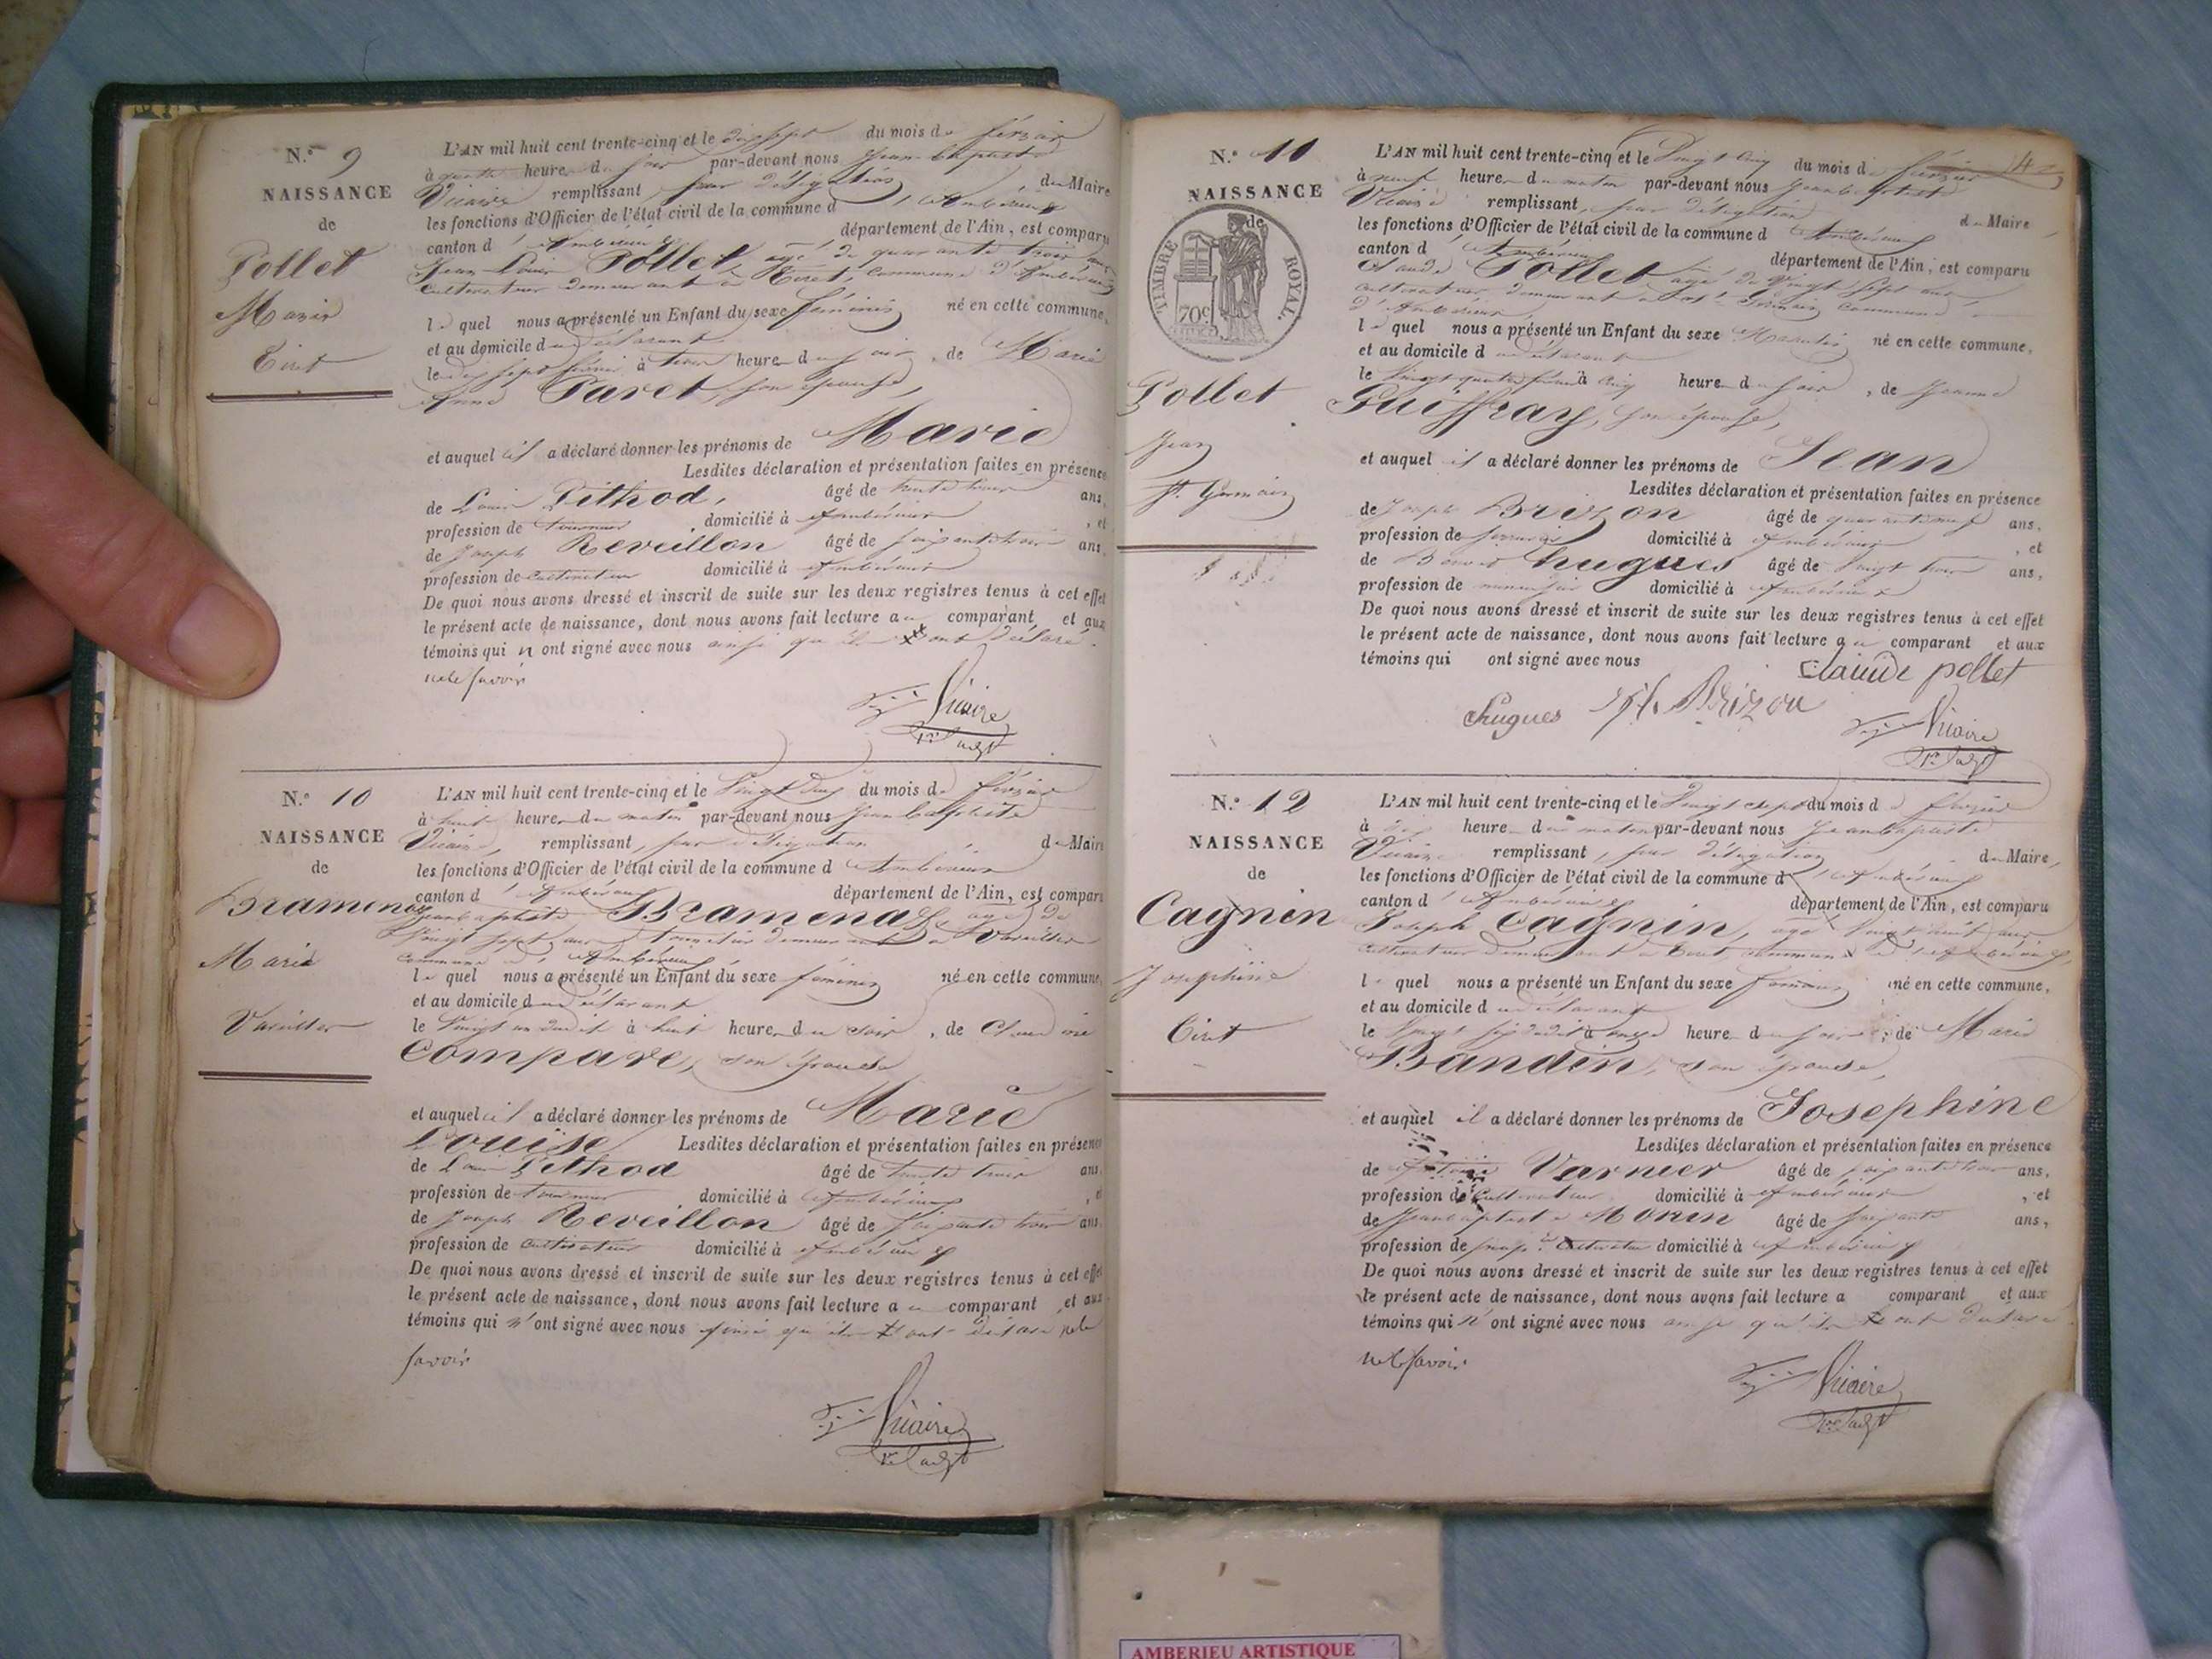 N.° 9
NAISSANCE
de
Pollet
Marie
Tiret
L'AN mil huit cent trente-cinq et le dix sept du mois de février
à quatre heures du soir par-devant nous Jean Baptiste
Vicaire remplissant par délégation du Maire
les fonctions d'Officier de l'état civil de la commune d'Ambérieux
canton d'Ambérieux département de l'Ain, est comparu
Jean Louis Pollet, agé de quarante trois ans
cultivateur demeurant à Tiret, commune d'Ambérieux
lequel nous a présenté un Enfant du sexe féminin né en cette commune,
et au domicile du déclarant
le dix sept février à trois heures du soir, de Marie
Anne Paret, son épouse,
et auquel il a déclaré donner les prénoms de Marie
Lesdites déclaration et présentation faites en présence
de Louis Pithod, âgé de trente trois ans,
profession de tourneur domicilié à Ambérieux, et
de Joseph Reveillon âgé de soixante trois ans,
profession de cultivateur domicilié à Ambérieux
De quoi nous avons dressé et inscrit de suite sur les deux registres tenus à cet effet
le présent acte de naissance, dont nous avons fait lecture au comparant et aux
témoins qui n'ont signé avec nous ainsi qu'ils ont déclaré
ne le savoir
Vicaire
N.° 10
NAISSANCE
de
Bramenas
Marie
Vareilles
L'AN mil huit cent trente-cinq et le Vingt deux du mois de février
à huit heures du matin par-devant nous Jean Baptiste
Vicaire, remplissant, par délégation du Maire
les fonctions d'Officier de l'état civil de la commune d'Ambérieux
canton d'Ambérieux département de l'Ain, est comparu
Jean Baptiste Bramenas agé de
Vingt sept ans demeurant à Vareilles
commune d'Ambérieux
lequel nous a présenté un Enfant du sexe féminin né en cette commune,
et au domicile du déclarant
le Vingt un dudit à huit heures du soir, de Claudine
Compare, son épouse
et auquel il a déclaré donner les prénoms de Marie
Louise Lesdites déclaration et présentation faites en présence
de Louis Pithod âgé de trente trois ans,
profession de tourneur domicilié à Ambérieux, et
de Joseph Reveillon âgé de soixante trois ans,
profession de cultivateur domicilié à Ambérieux
De quoi nous avons dressé et inscrit de suite sur les deux registres tenus à cet effet
le présent acte de naissance, dont nous avons fait lecture au comparant, et aux
témoins qui n'ont signé avec nous ainsi qu'ils ont déclaré ne le
savoir
Vicaire
N.° 11
NAISSANCE
de
TIMBRE ROYAL.
70c
Pollet
Jean
St. Germain
L'AN mil huit cent trente-cinq et le Vingt cinq du mois de février
à neuf heures du matin par-devant nous Jean Baptiste
Vicaire remplissant, par délégation du Maire
les fonctions d'Officier de l'état civil de la commune d'Ambérieux
canton d'Ambérieux département de l'Ain, est comparu
Claude Pollet agé de Vingt sept ans
cultivateur, demeurant à St Germain commune
d'Ambérieux
lequel nous a présenté un Enfant du sexe Masculin né en cette commune,
et au domicile du déclarant
le Vingt quatre février à cinq heures du soir, de Jeanne
Guiffray, son épouse,
et auquel il a déclaré donner les prénoms de Jean
Lesdites déclaration et présentation faites en présence
de Joseph Brizon âgé de quarante neuf ans,
profession de domicilié à Ambérieux, et
de Benoit hugues âgé de Vingt trois ans,
profession de menuisier domicilié à Ambérieux
De quoi nous avons dressé et inscrit de suite sur les deux registres tenus à cet effet
le présent acte de naissance, dont nous avons fait lecture au comparant et aux
témoins qui ont signé avec nous
Claude pollet
hugues Jh. Brizon
Vicaire
N.° 12
NAISSANCE
de
Cagnin
Josephine
Tiret
L'AN mil huit cent trente-cinq et le Vingt sept du mois de février
à dix heures du matin par-devant nous Jean Baptiste
Vicaire remplissant, par délégation du Maire,
les fonctions d'Officier de l'état civil de la commune d'Ambérieux
canton d'Ambérieux département de l'Ain, est comparu
Joseph Cagnin, agé Vingt huit ans
cultivateur demeurant à Tiret, commune d'Ambérieux,
lequel nous a présenté un Enfant du sexe féminin né en cette commune,
et au domicile du déclarant
le Vingt six dudit à onze heures du soir, de Marie
Bandin, son épouse,
et auquel il a déclaré donner les prénoms de Josephine
Lesdites déclaration et présentation faites en présence
de Antoine Varnier âgé de soixante trois ans,
profession de cultivateur domicilié à Ambérieux, et
de Jean Baptiste Morin âgé de soixante ans,
profession de cultivateur domicilié à Ambérieux
De quoi nous avons dressé et inscrit de suite sur les deux registres tenus à cet effet
le présent acte de naissance, dont nous avons fait lecture a comparant et aux
témoins qui n'ont signé avec nous ainsi qu'ils ont déclaré
ne le savoir.
Vicaire
AMBERIEU ARTISTIQUE